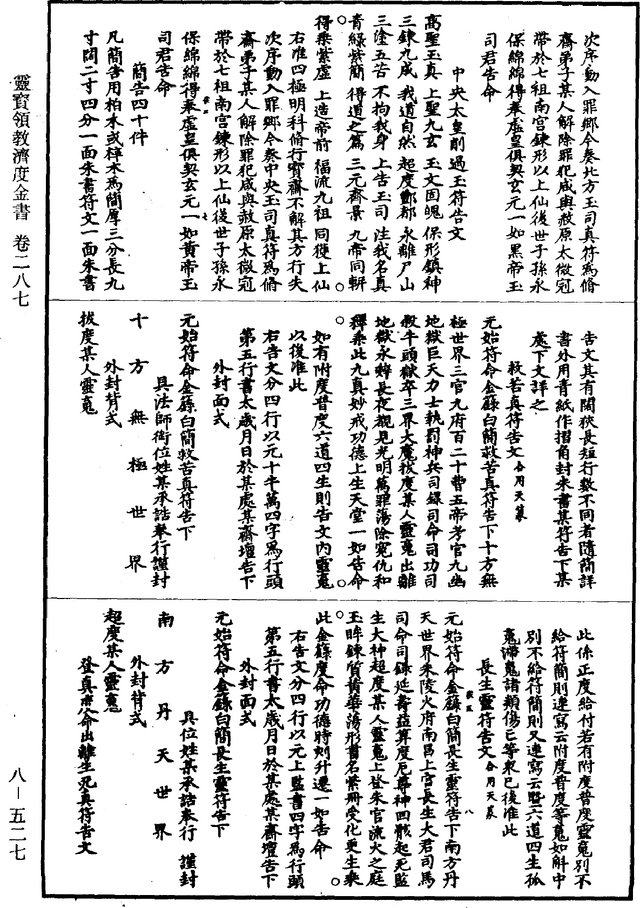 次序動入罪鄉今奏北方玉司真符爲脩
齋弟子某人解除罪犯咸與赦原太微冠
帶於七祖南宫鍊形以上仙後世子孫永
保綿綿得奉虛皇俱契玄元一如黑帝玉
司君告命
中央太皇削過玉符告文
高聖玉真 上聖九玄 玉文固魄 保形鎮神
三鍊九成 我道自然 超度酆都 永離尸山
三塗五苦 不拘我身 上告玉司 注我名真
青綠紫簡 得道之篇 三元齋景 九帝同輧
得乘紫虛 上造帝前 福流九祖 同獲上仙
右准四極明科脩行寶齋不解其方行失
次序動入罪鄉今奏中央玉司真符爲脩
齋弟子某人解除罪犯咸與赦原太微冠
帶於七祖南宫鍊形以上仙後世子孫永
保綿綿得奉虛皇俱契玄元一如黄帝玉
司君告命
簡告四十件
凡簡告用柏木或梓木爲簡厚三分長九
寸闊二寸四分一面朱書符文一面朱書
告文其有闊狹長短行數不同者隨簡詳
書外用青紙作摺角封朱書某符告下某
處下文詳之
救苦真符告文 合用天篆
元始符命金籙白簡救苦真符告下十方無
極世界三官九府百二十曹五帝考官九幽
地獄巨天力士執罰神兵司録司命司功司
殺牛頭獄卒三界大魔拔度某人靈魂出離
地獄永辭長夜覩見光明萬罪蕩除寃仇和
釋乘此九真妙戒功德上生天堂一如告命
如有附度普度六道四生則告文内靈魂
以後准此
右告文分四行以元十牛萬四字爲行頭
第五行書太歲月日於某處某齋壇告下
外封面式
元始符命金籙白簡救苦真符告下
具法師銜位姓某承誥奉行謹封
十方無極世界
外封背式
拔度某人靈魂
此係正度給付若有附度普度靈魂别不
給符簡則連寫云附度普度等魂如斛中
别不給符簡則又連寫云暨六道四生孤
魂滯魄諸類傷亡等衆已後准此
長生靈符告文 合用天篆
元始符命金籙白簡長生靈符告下南方丹
天世界朱陵火府南昌上宫長生大君司馬
司命司録延壽益算度厄尊神四骸起死監
生大神超度某人靈魂上登朱宫流火之庭
玉眸鍊質黄華蕩形書名紫册受化更生乘
此金籙度命功德時刻升遷一如告命
右告文分四行以元上監書四字爲行頭
第五行書太歲月日於某處某齋壇告下
外封面式
元始符命金籙白簡長生靈符告下
具位姓某承誥奉行 謹封
南方丹天世界
外封背式
超度某人靈魂
登真赤命出離生死真符告文
靈寶領教濟度金書 卷二八七
八－五二七